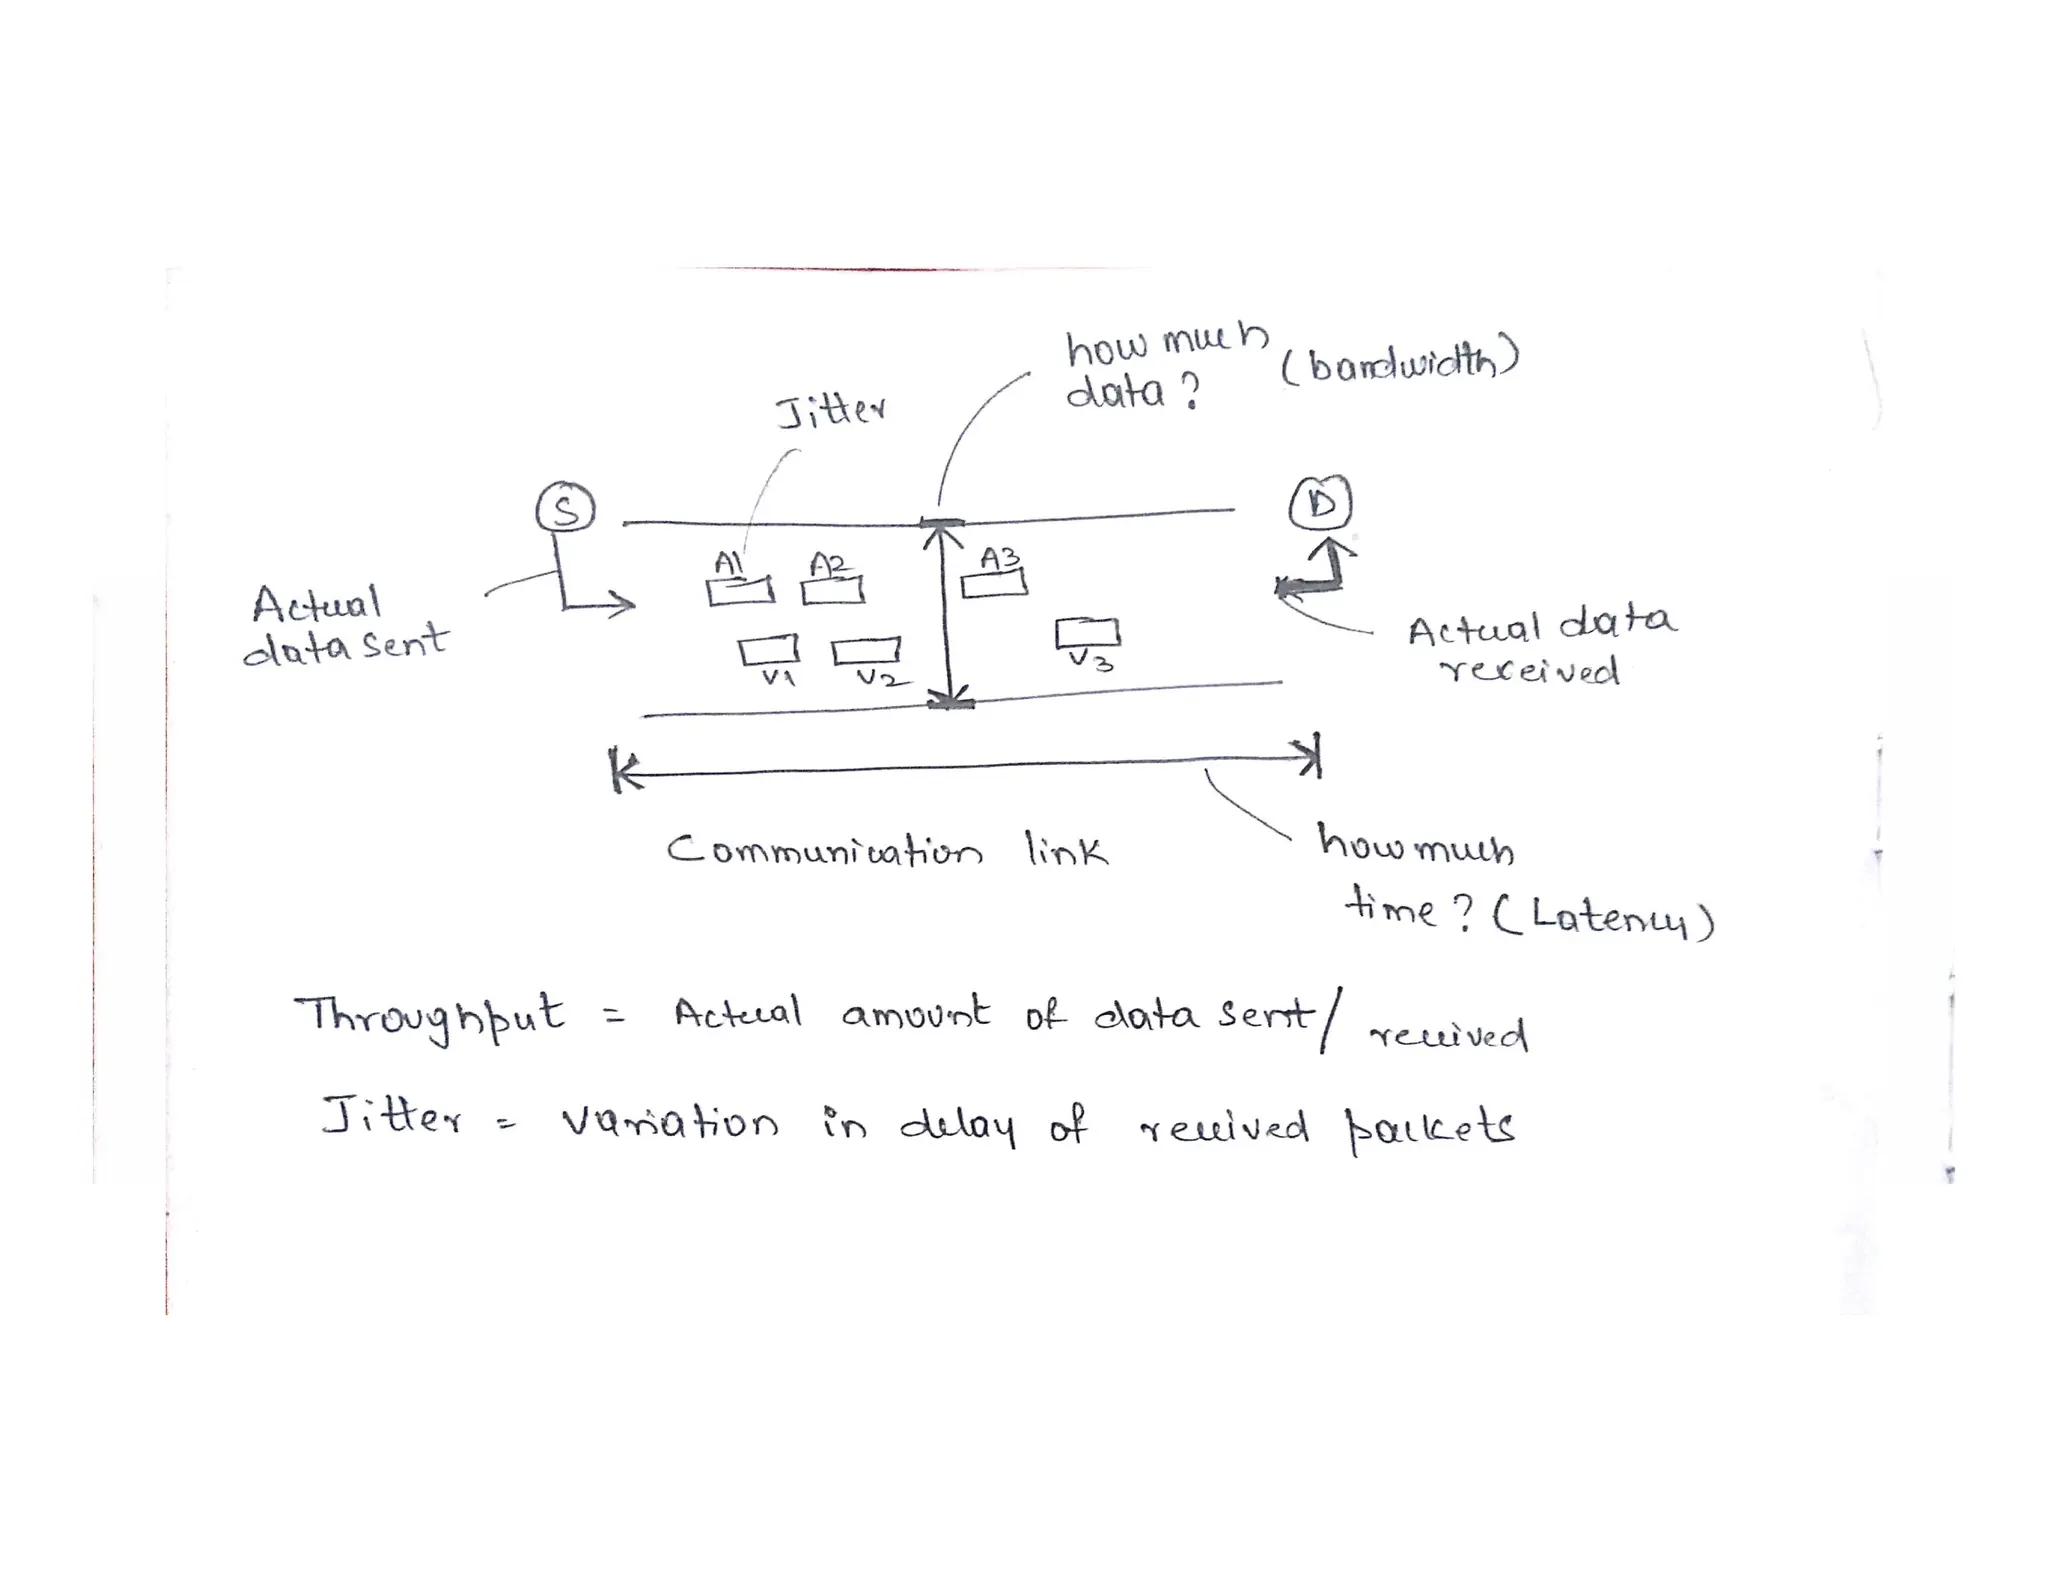 how much
data ? (bandwidth)
Jitter
S
D
A1 A2 A3
Actual
data sent
V1 V2 V3
Actual data
received
Communication link
how much
time ? (Latency)
Throughput = Actual amount of data sent/ received
Jitter = variation in delay of received packets